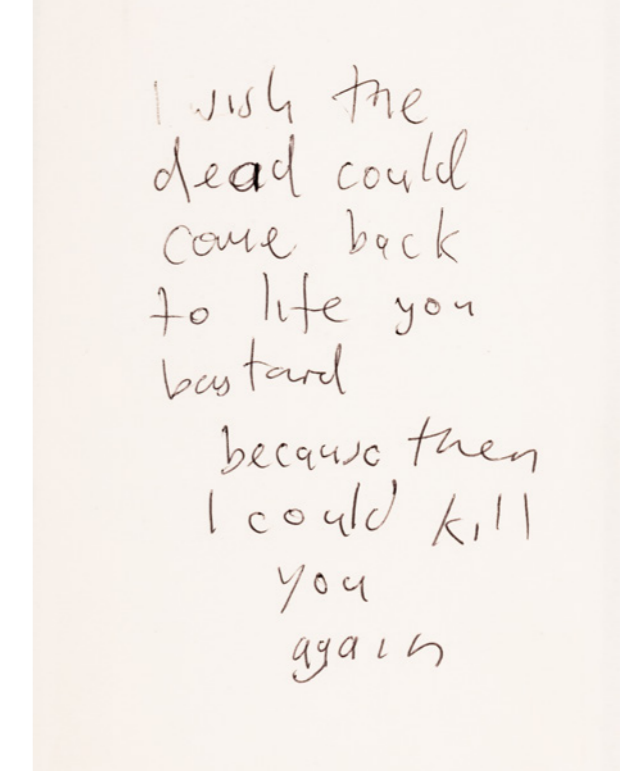 I wish the
dead could
come back
to life you
bastard
because then
I could kill
you
again